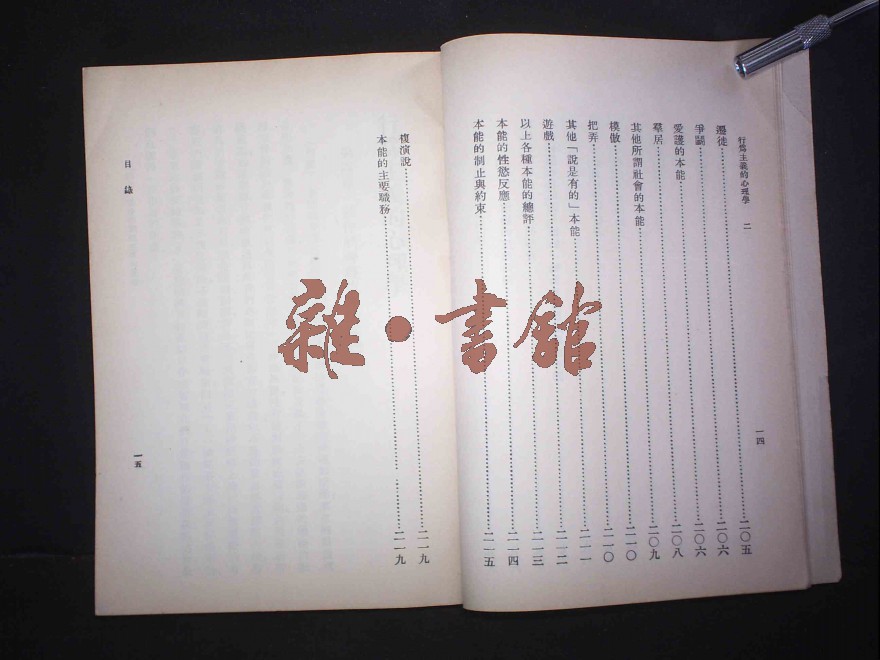 行為主義的心理學 二
一四
遷徙……二〇五
爭鬭……二〇六
愛護的本能……二〇六
羣居……二〇八
其他所謂社會的本能……二〇九
模倣……二一〇
把弄……二一〇
其他「說是有的」本能……二一一
遊戲……二一二
以上各種本能的總評……二一三
本能的性慾反應……二一四
本能的制止與約束……二一五
複演說……二一九
本能的主要職務……二一九
目錄
一五
雜・書館